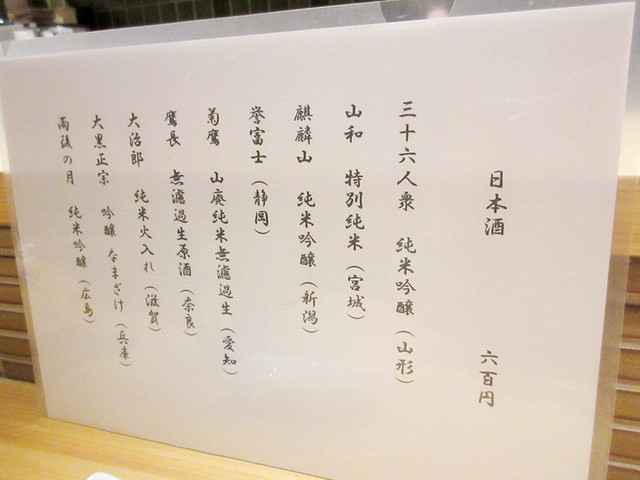 日本酒 六百円
三十六人衆 純米吟醸（山形）
山和 特別純米（宮城）
麒麟山 純米吟醸（新潟）
誉富士（静岡）
菊鷹 山廃純米無濾過生（愛知）
鷹長 無濾過生原酒（奈良）
大治郎 純米火入れ（滋賀）
大黒正宗 吟醸 なまざけ（兵庫）
雨後の月 純米吟醸（広島）